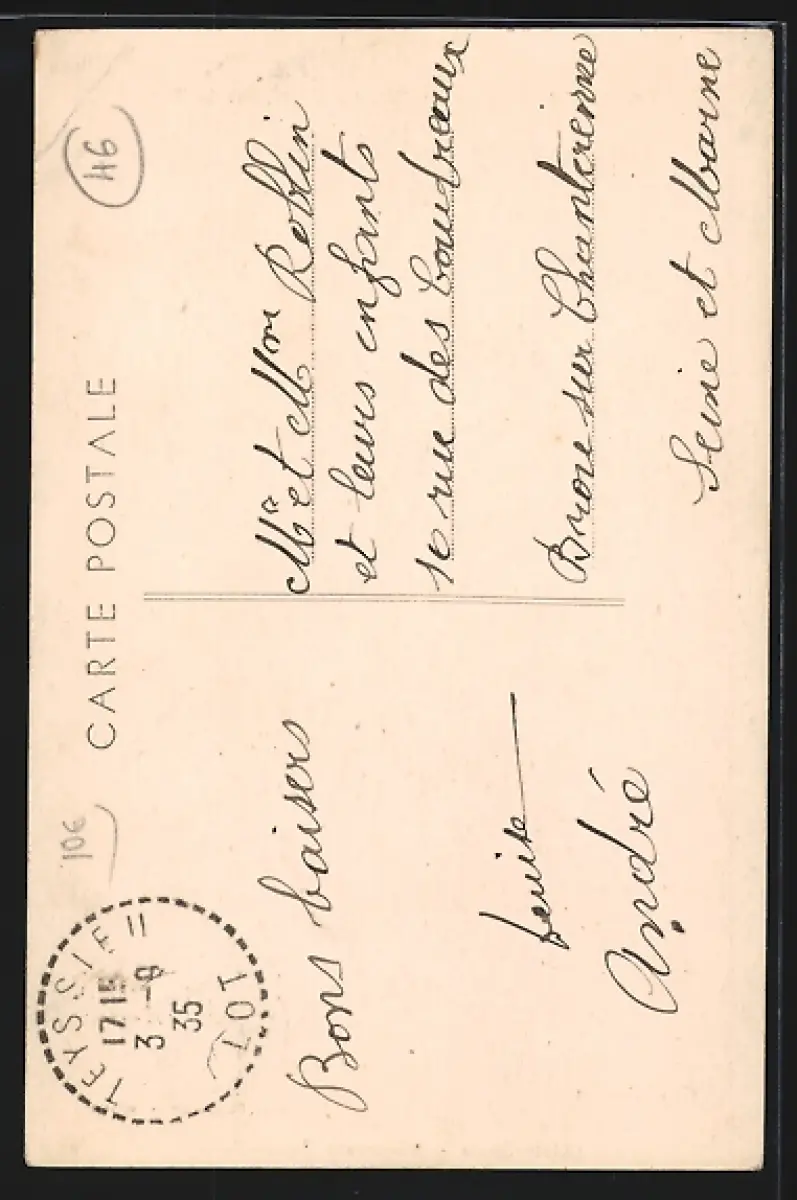 46
CARTE POSTALE
10€
TEYSSIEU
17 15
3 -9
35
LOT
Bons baisers
André
Mr et Mme Roblin
et leurs enfants
10 rue des Coudreaux
Brou sur Chantereine
Seine et Marne